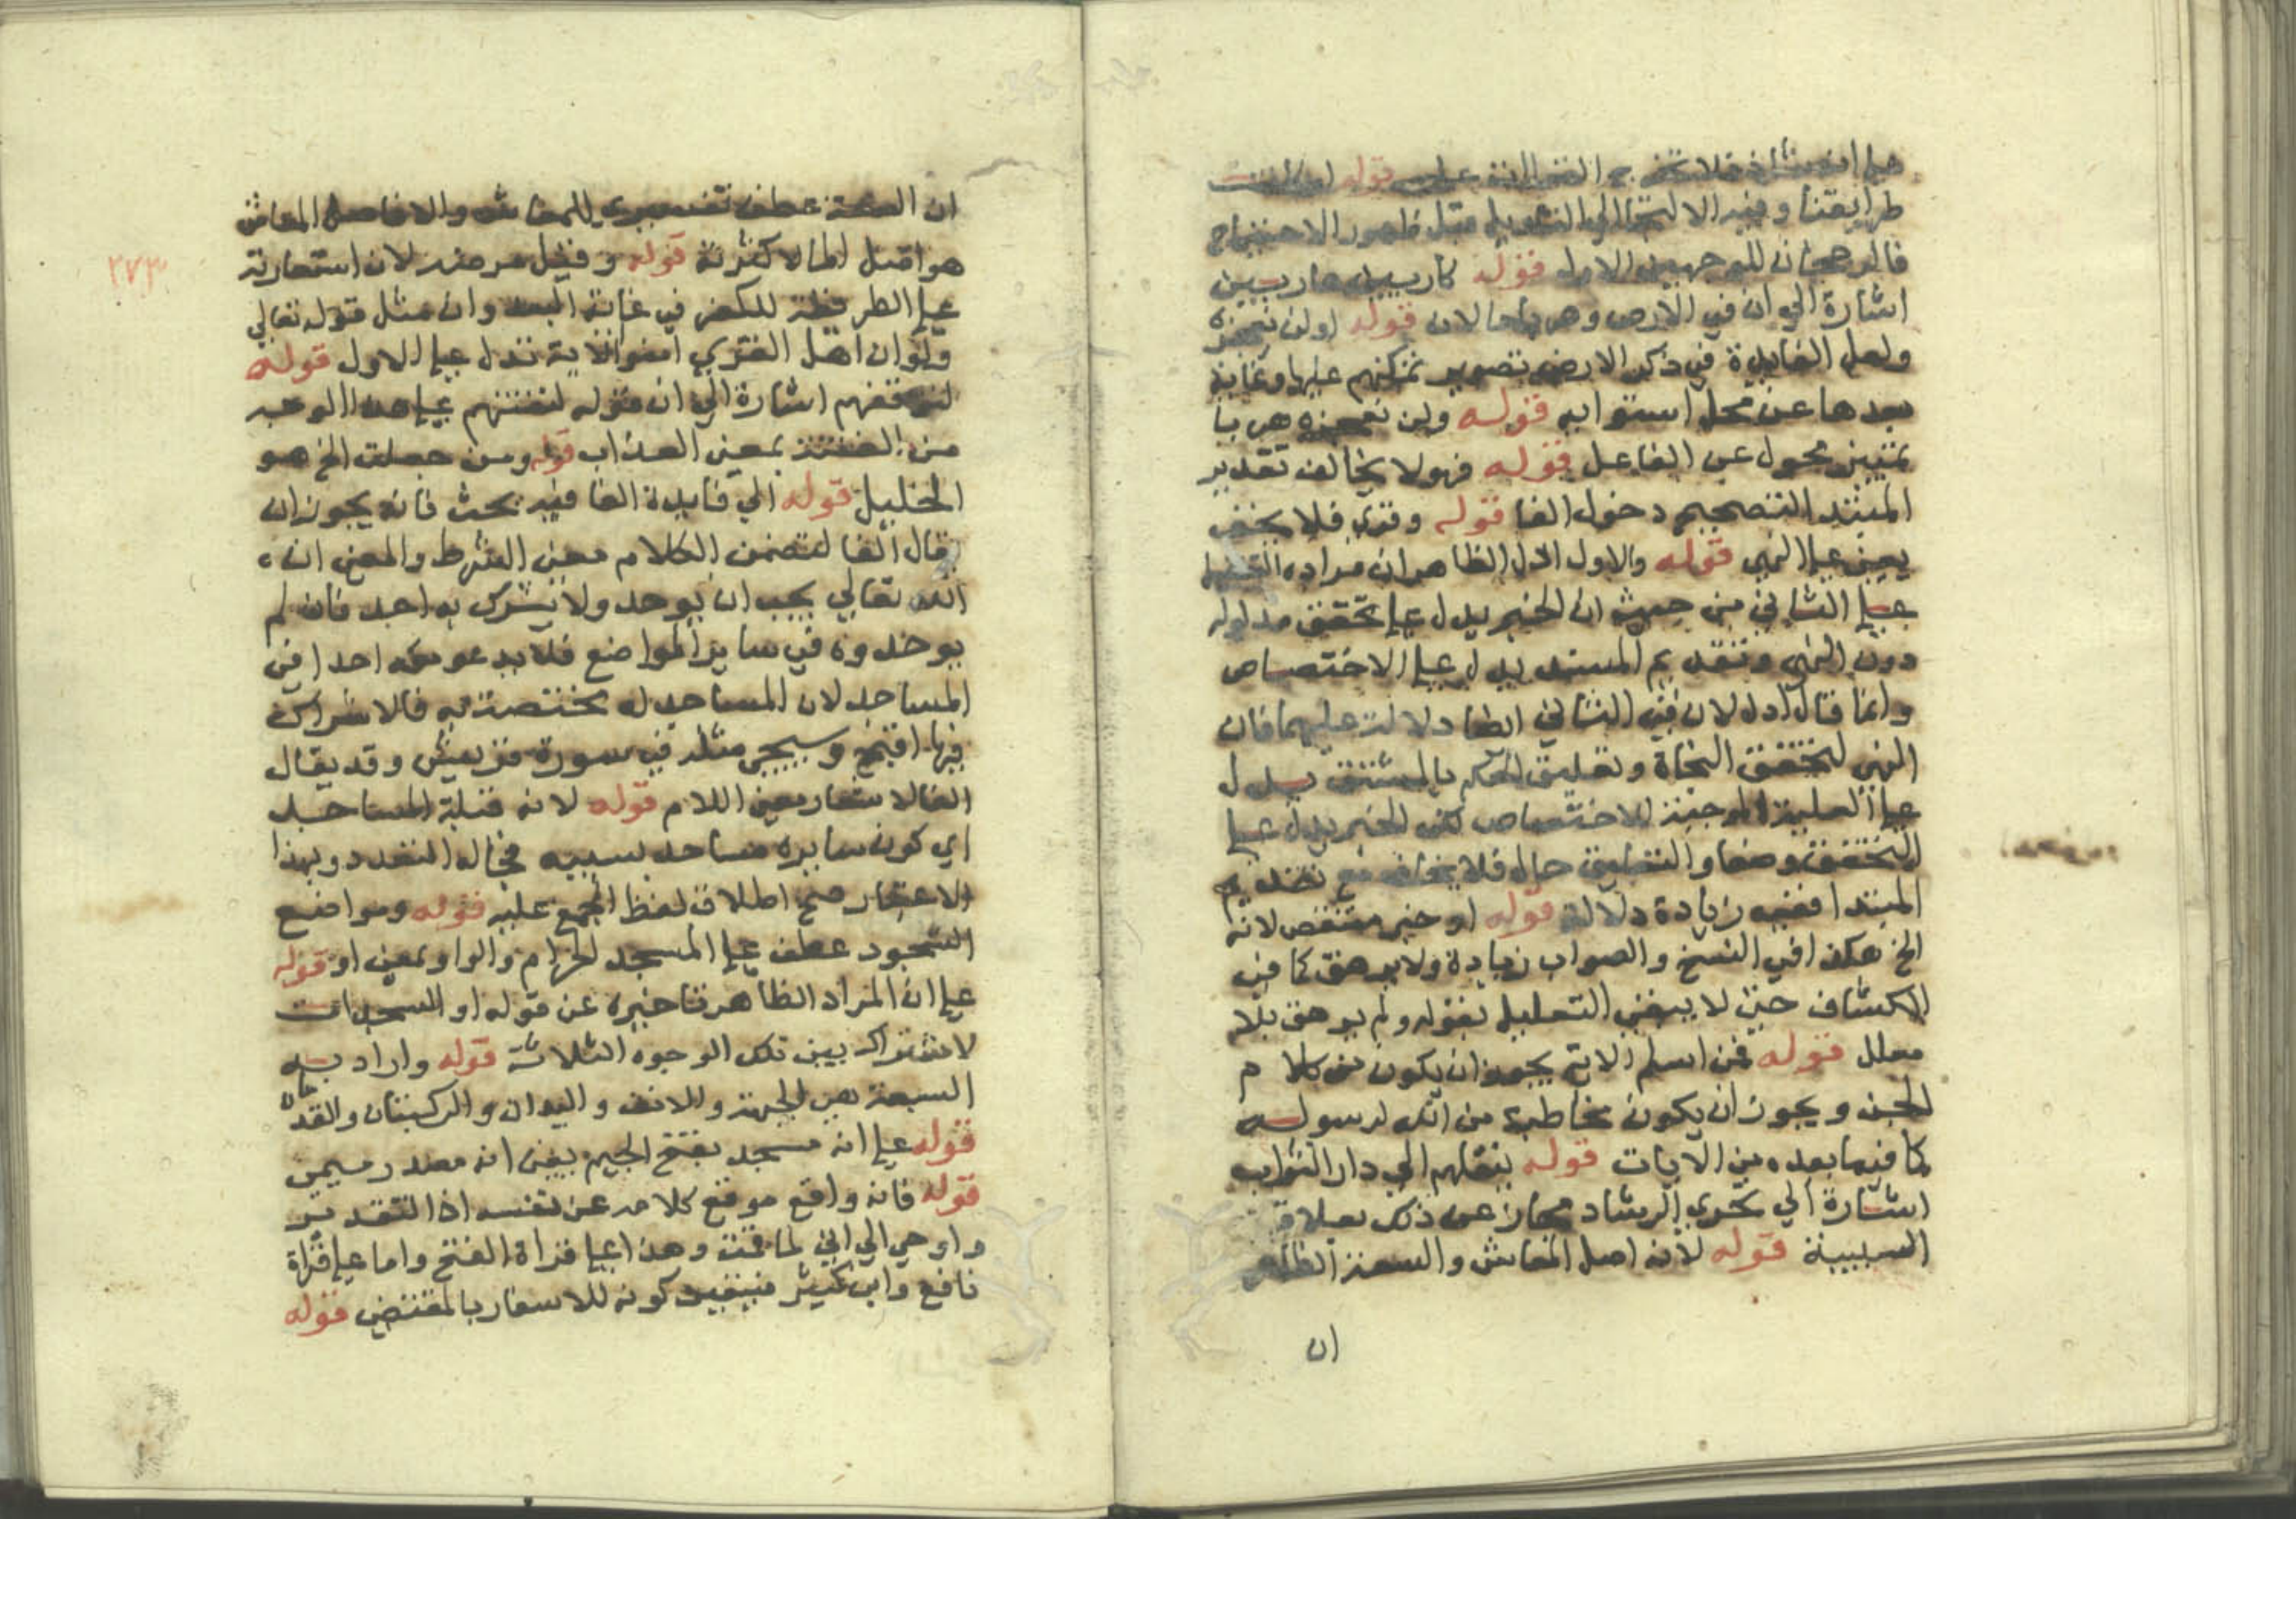 طرايقنا وفيه الالتجا الي التقدير قبل ظهور الاحتياج
فالوجهان للوجهين الاول قوله كاربين هاربين
اشارة الي ان في الارض وهربا حالان قوله او لن نعجزه
ولعل الفايدة في ذكر الارض تصوير تمكنهم عليها وغاية
بعدها عن محل استوايه قوله ولن نعجزه هربا
تمييز محول عن الفاعل قوله فهو لا يخاف تقدير
المبتدا لتصحيح دخول الفا قوله وقري فلا يخف
يعني علي النهي قوله والاول ادل الظاهر ان مراده
علي الثاني من حيث ان الخبر يدل علي تحقق مدلوله
دون النهي وتقديم المسند يدل علي الاختصاص
وانما قال ادل لان في الثاني ايضا دلالة عليهما فان
النهي لتحقق النجاة وتعليق الحكم بالمشتق يدل
علي العلية الموجبة للاختصاص لكن الخبر يدل علي
التحقق وضعا والتعليق حاله فلا يخلو مع تقديم
المبتدا ففيه زيادة دلالة قوله او خبر متنقص لانه
الخ هكذا في النسخ والصواب زيادة ولا يرهق كما في
الكشاف حتي لا يبقي التعليل بقوله ولم يرهق بلا
معلل قوله فمن اسلم الاية يجوز ان يكون من كلام
الجن ويجوز ان يكون مخاطبة من الله لرسوله
كما فيما بعده من الايات قوله ينقلهم الي دار الثواب
اشارة الي تحري الرشاد مجاز عن ذلك بعلاقة
السببية قوله لانه اصل المعاش والسعة الظاهر
ان
٢٧٣
ان السعة عطف تفسيري للمعاش والا فاصل المعاش
هو اقل الما لا كثرته قوله وقيل مرضه لان استعارة
علي الطريقة للكفر في غاية البعد وان مثل قوله تعالي
ولو ان اهل القري امنوا الاية تدل علي الاول قوله
لنوقعهم اشارة الي ان قوله لنفتنهم علي هذا الوجه
من الفتنة بمعني العذاب قوله ومن جعلت الخ هو
الخليل قوله الي فايدة الفا فيه بحث فانه يجوز ان
يقال الفا لتضمن الكلام معني الشرط والمعني ان
الله تعالي يجب ان يوحد ولا يشرك به احد فان لم
يوحدوه في ساير المواضع فلا يدعوا معه احدا في
المساجد لان المساجد له مختصة به فالاشراك
فيها اقبح وسيجي مثله في سورة قريش وقد يقال
الفا لاشعار معني اللام قوله لانه قبلة المساجد
اي كون سايره مساجد بسببه فجاله التعدد وبهذا
الاعتبار صح اطلاق لفظ الجمع عليه قوله ومواضع
السجود عطف علي المسجد الحرام والواو بمعني او قوله
علي ان المراد الظاهر تاخيره عن قوله او السجدات
لاشتراك بين تلك الوجوه الثلاثة قوله واراد به
السبعة هي الجبهة والانف واليدان والركبتان والقدمان
قوله علي انه مسجد بفتح الجيم يعني انه مصدر ميمي
قوله فانه واقع موقع كلامه عن نفسه اذ التقدير
واوحي الي اني لما قمت وهذا علي قراة الفتح واما علي قراة
نافع وابن كثير فيفيد كونه للاشعار بالمقتضي قوله